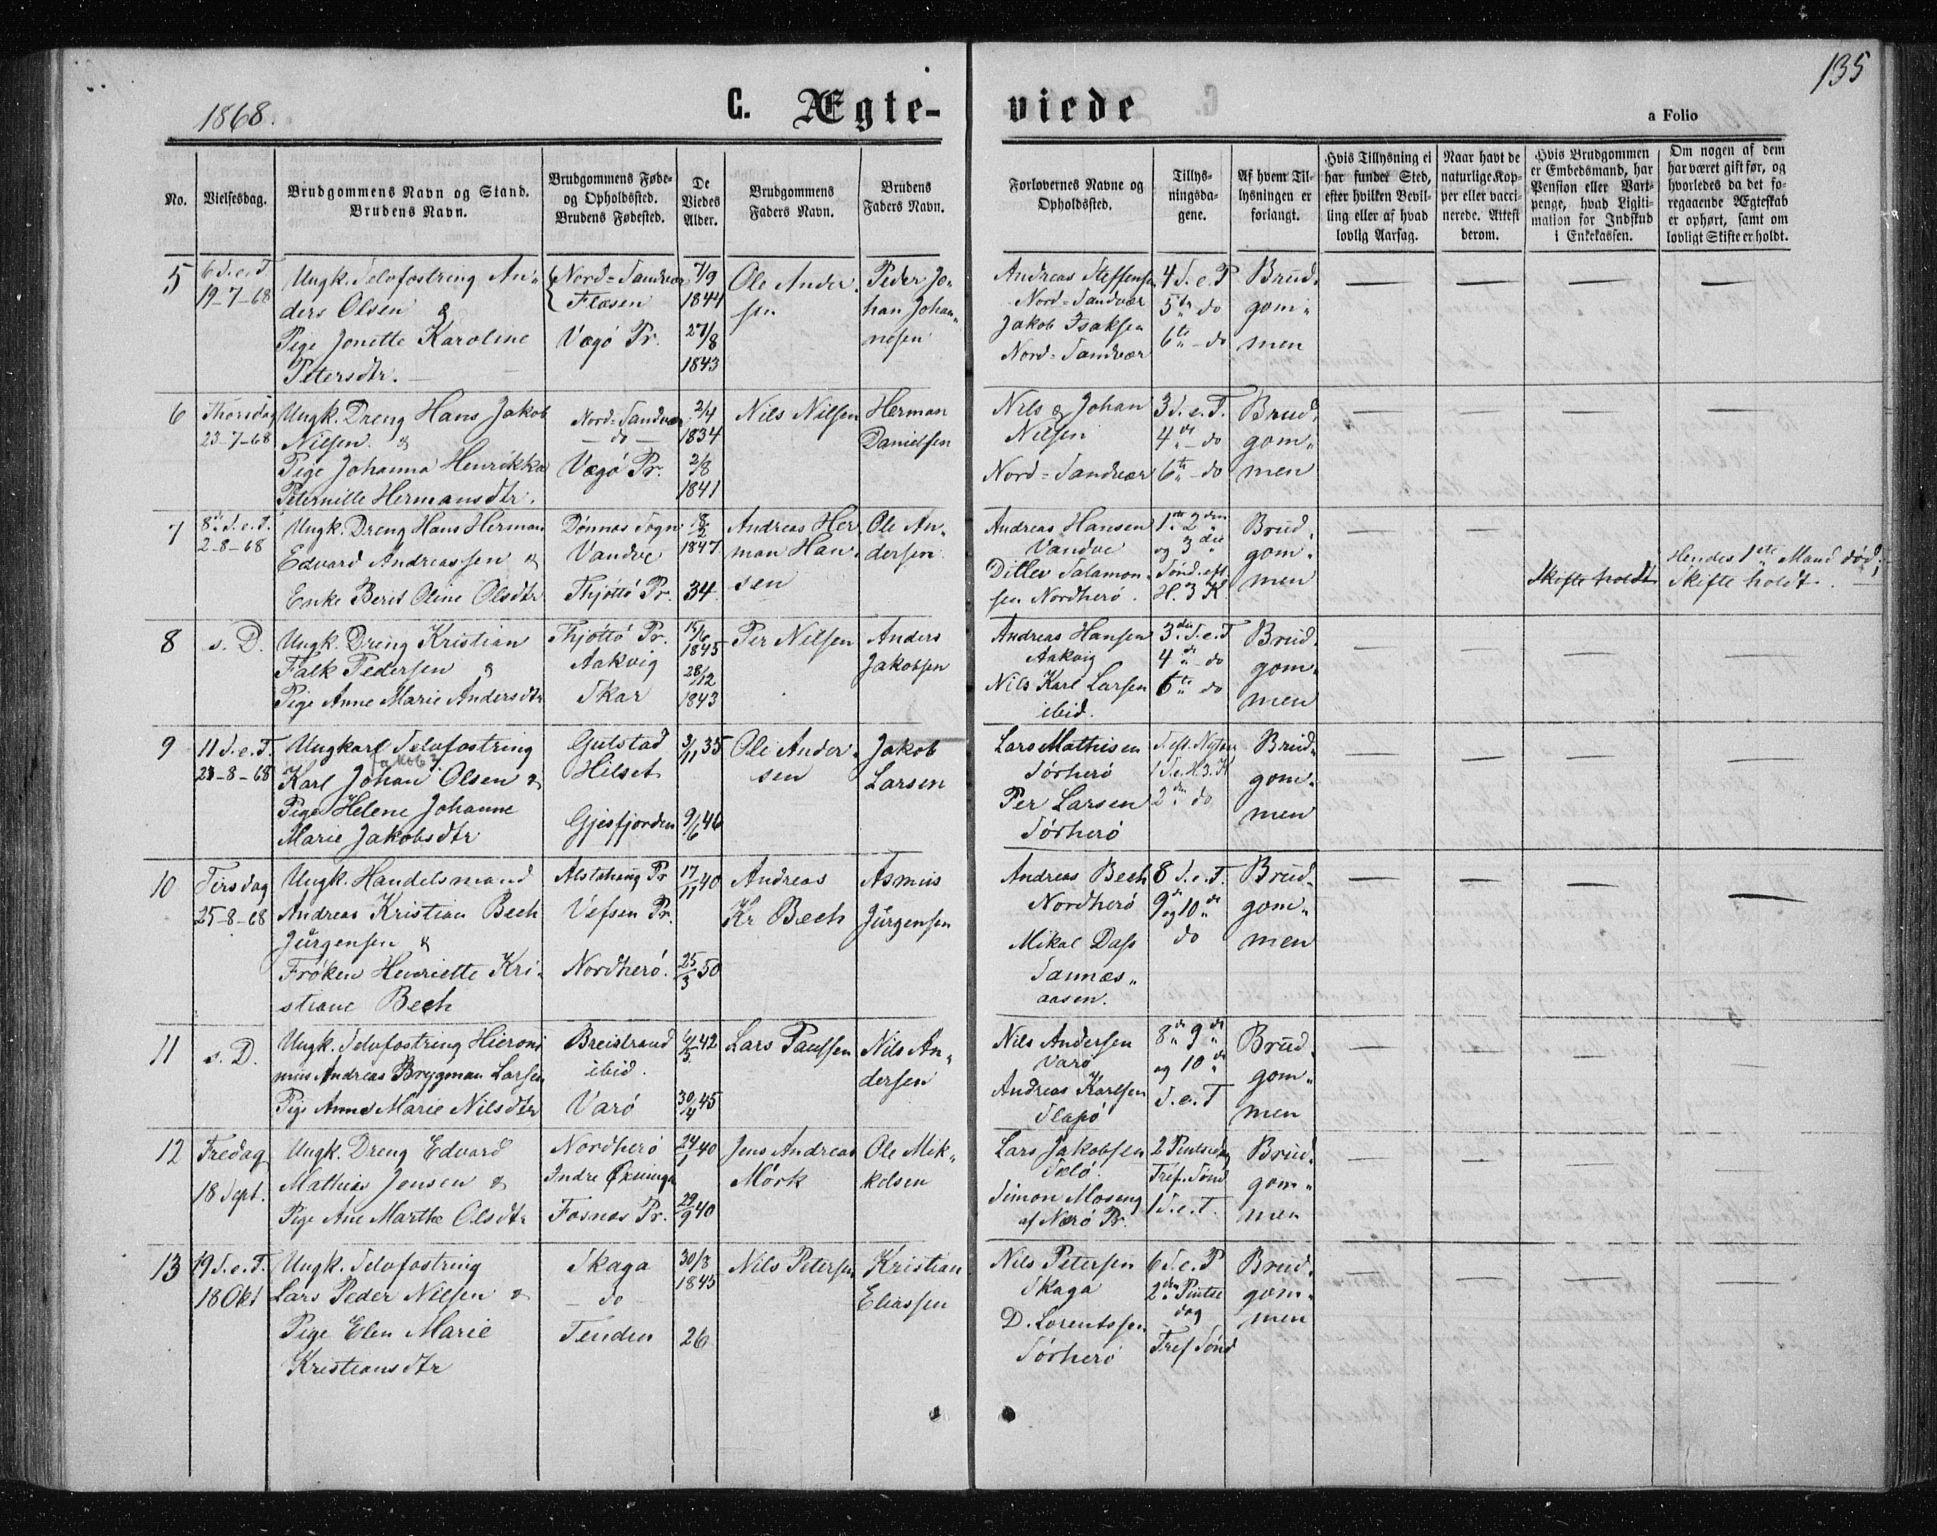 135
1868.
C. Ægte-
viede
a Folio
No.
Vielsesdag.
Brudgommens Navn og Stand.
Brudens Navn.
Brudgommens Føde-
og Opholdssted.
Brudens Fødested.
De
Viedes
Alder.
Brudgommens
Faders Navn.
Brudens
Faders Navn.
Forlovernes Navne og
Opholdssted.
Tillys-
ningsda-
gene.
Af hvem Til-
lysningen er
forlangt.
Hvis Tillysning ei
har funder Sted,
efter hvilken Bevil-
ling eller af hvad
lovlig Aarsag.
Naar havt de
naturlige Kop-
per eller vacci-
nerede. Attest
derom.
Hvis Brudgommen
er Embedsmand, har
Pension eller Vart-
penge, hvad Ligiti-
mation for Indskud
i Enkekassen.
Om nogen af dem
har været gift før, og
hvorledes da det fo-
regaaende Ægteskab
er ophørt, samt om
lovligt Skifte er holdt.
5
6 S. e. T.
19-7-68
Ungk. Selvfostring An-
ders Olsen &
Pige Jonette Karoline
Petersdtr. —
Nord-Sandvær
Flæsen
Vegø Pr.
7/9
1844
27/8
1843
Ole Ander-
sen
Peder Jo-
han Johan-
nesen
Andreas Steffensen
Nord-Sandvær
Jakob Isaksen
Nord-Sandvær
4 S. e. P
5te do
6te - do
Brud-
gom-
men
6
Thorsdag
23-7-68
Ungk. Dreng Hans Jakob
Nilsen. &
Pige Johanna Henrikka
Peternille Hermansdtr.
Nord-Sandvær
— do —
Vegø Pr.
2/4
1834
2/8
1841
Nils Nilsen
Herman
Danielsen
Nils & Johan
Nilsen
Nord-Sandvær
3 S. e. T.
4de - do
6te - do
Brud-
gom-
men
7
8de S. e. T.
2-8-68
Ungk. Dreng Hans Herman
Edvard Andreassen &
Enke Berit Oline Olsdtr
Dønnes Sogn
Vandve
Thjøttø Pr.
8/2
1847
34
Andreas Her-
man Han-
sen
Ole An-
dersen
Andreas Hansen
Vandve
Ditlev Salamon-
sen Nordherø.
1ste 2den
og 3die
Sønd. eft
H. 3 K.
Brud-
gom-
men
Skifte holdt
Hendes 1ste Mand død;
Skifte holdt.
8
s. D.
Ungk. Dreng Kristian
Falk Pedersen &
Pige Anne Marie Andersdtr
Thjøttø Pr.
Aakvig
Skar
15/6
1845
28/12
1843
Per Nilsen
Anders
Jakobsen
Andreas Hansen
Aakvig
Nils Karl Larsen
ibid.
3die S. e. T
4de - do
6te do
Brud-
gom-
men
9
11 S. e. T.
23-8-68
Ungkarl Selvfostring
Jakob
Karl Johan Olsen &
Pige Helene Johanne
Marie Jakobsdtr
Gulstad
Hilset
Gjesfjorden
3/11 35
9/6 46
Ole Ander-
sen
Jakob
Larsen
Lars Mathisen
Sørherø
Per Larsen
Sørherø
S. eft. Nytaar
1 S. e. H. 3. K
2den do
Brud-
gom-
men
10
Tirsdag
25-8-68
Ungk. Handelsmand
Andreas Kristian Bech
Jürgensen &
Frøken Henriette Kri-
stiane Bech
Alstahaug Pr
Vefsen Pr.
Nordherø.
17/11 40
25/3 50
Andreas
Kr Bech
Asmus
Jürgensen
Andreas Bech
Nordherø
Mikal Dass
Sannæs-
aasen.
8 S. e. T.
9de og 10de
do
Brud-
gom-
men
11
s. D.
Ungk. Selvfostring Hieroni
mus Andreas Brygman Larsen
Pige Anne Marie Nilsdtr
Breistrand
ibid.
Varø
42
30/4 45
Lars Paulsen
Nils An-
dersen
Nils Andersen
Varø
Andreas Karlsen
Slapø
8de 9de
og 10de
S. e. T
Brud-
gom-
men
12
Fredag
18 Sept.
Ungk. Dreng Edvard
Mathias Jensen &
Pige Ane Marthe Olsdtr
Nordherø
Indre Øksninga
Fosnæs Pr.
24/1 40
29/9 40
Jens Andreas
Mørk
Ole Mik-
kelsen
Lars Jakobsen
Sælø.
Simon Moseng
af Nærø Pr.
2 Pintsedag
Tref. Sønd
1 S. e. T.
Brud-
gom-
men
13
19 S. e. T.
18 Okt
Ungk. Selvfostring
Lars Peder Nilsen &
Pige Elen Marie
Kristiansdtr
Skaga
— do —
Tenden
30/8
1845
26
Nils Petersen
Kristian
Eliassen
Nils Petersen
Skaga
D. Lorentssen
Sørherø
6 S. e. P
2den Pintse
dag
Tref Sønd
Brud-
gom-
men